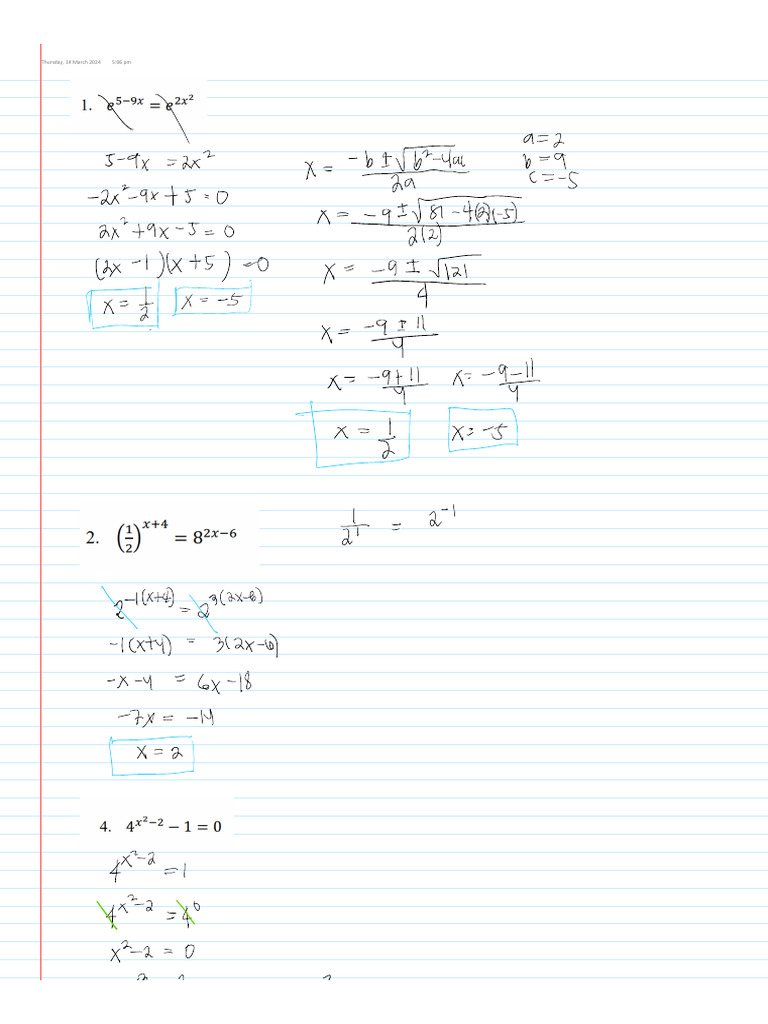 Thursday, 14 March 2024 5:06 pm
1. e^{5−9x} = e^{2x²}
5-9x = 2x²
-2x²-9x+5=0
2x²+9x-5=0
(2x-1)(x+5)=0
x=1/2 x=-5
x = (-b±√(b²-4ac))/2a
a=2
b=9
c=-5
x = (-9±√(81-4(2)(-5)))/2(2)
x = (-9±√121)/4
x = (-9±11)/4
x = (-9+11)/4 x = (-9-11)/4
x = 1/2 x=-5
2. (1/2)^{x+4} = 8^{2x−6}
1/2¹ = 2^{-1}
2^{-1(x+4)} = 2^{3(2x-6)}
-1(x+4) = 3(2x-6)
-x-4 = 6x-18
-7x = -14
x=2
4. 4^{x²−2} − 1 = 0
4^{x²-2} = 1
4^{x²-2} = 4^0
x²-2 = 0